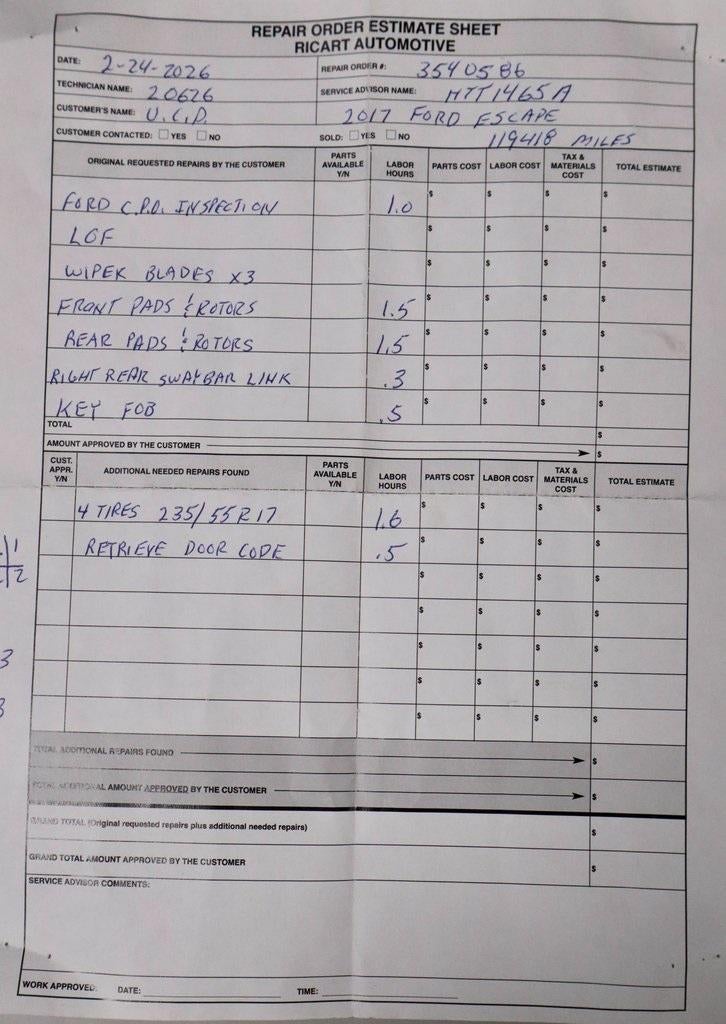 REPAIR ORDER ESTIMATE SHEET
RICART AUTOMOTIVE
DATE: 2-24-2026 REPAIR ORDER #: 3540586
TECHNICIAN NAME: 20626 SERVICE ADVISOR NAME: HTT1465A
CUSTOMER'S NAME: U.C.D. 2017 FORD ESCAPE
CUSTOMER CONTACTED: YES NO SOLD: YES NO 119418 MILES
ORIGINAL REQUESTED REPAIRS BY THE CUSTOMER PARTS AVAILABLE Y/N LABOR HOURS PARTS COST LABOR COST TAX & MATERIALS COST TOTAL ESTIMATE
FORD C.P.O. INSPECTION 1.0 $ $ $ $
LOF $ $ $ $
WIPER BLADES x3 $ $ $ $
FRONT PADS & ROTORS 1.5 $ $ $ $
REAR PADS & ROTORS 1.5 $ $ $ $
RIGHT REAR SWAYBAR LINK .3 $ $ $ $
KEY FOB .5 $ $ $ $
TOTAL $
AMOUNT APPROVED BY THE CUSTOMER $
CUST. APPR. Y/N ADDITIONAL NEEDED REPAIRS FOUND PARTS AVAILABLE Y/N LABOR HOURS PARTS COST LABOR COST TAX & MATERIALS COST TOTAL ESTIMATE
4 TIRES 235/55R17 1.6 $ $ $ $
RETRIEVE DOOR CODE .5 $ $ $ $
$ $ $ $
$ $ $ $
$ $ $ $
$ $ $ $
$ $ $ $
TOTAL ADDITIONAL REPAIRS FOUND $
TOTAL ADDITIONAL AMOUNT APPROVED BY THE CUSTOMER $
GRAND TOTAL (Original requested repairs plus additional needed repairs) $
GRAND TOTAL AMOUNT APPROVED BY THE CUSTOMER $
SERVICE ADVISOR COMMENTS:
WORK APPROVED: DATE: TIME: